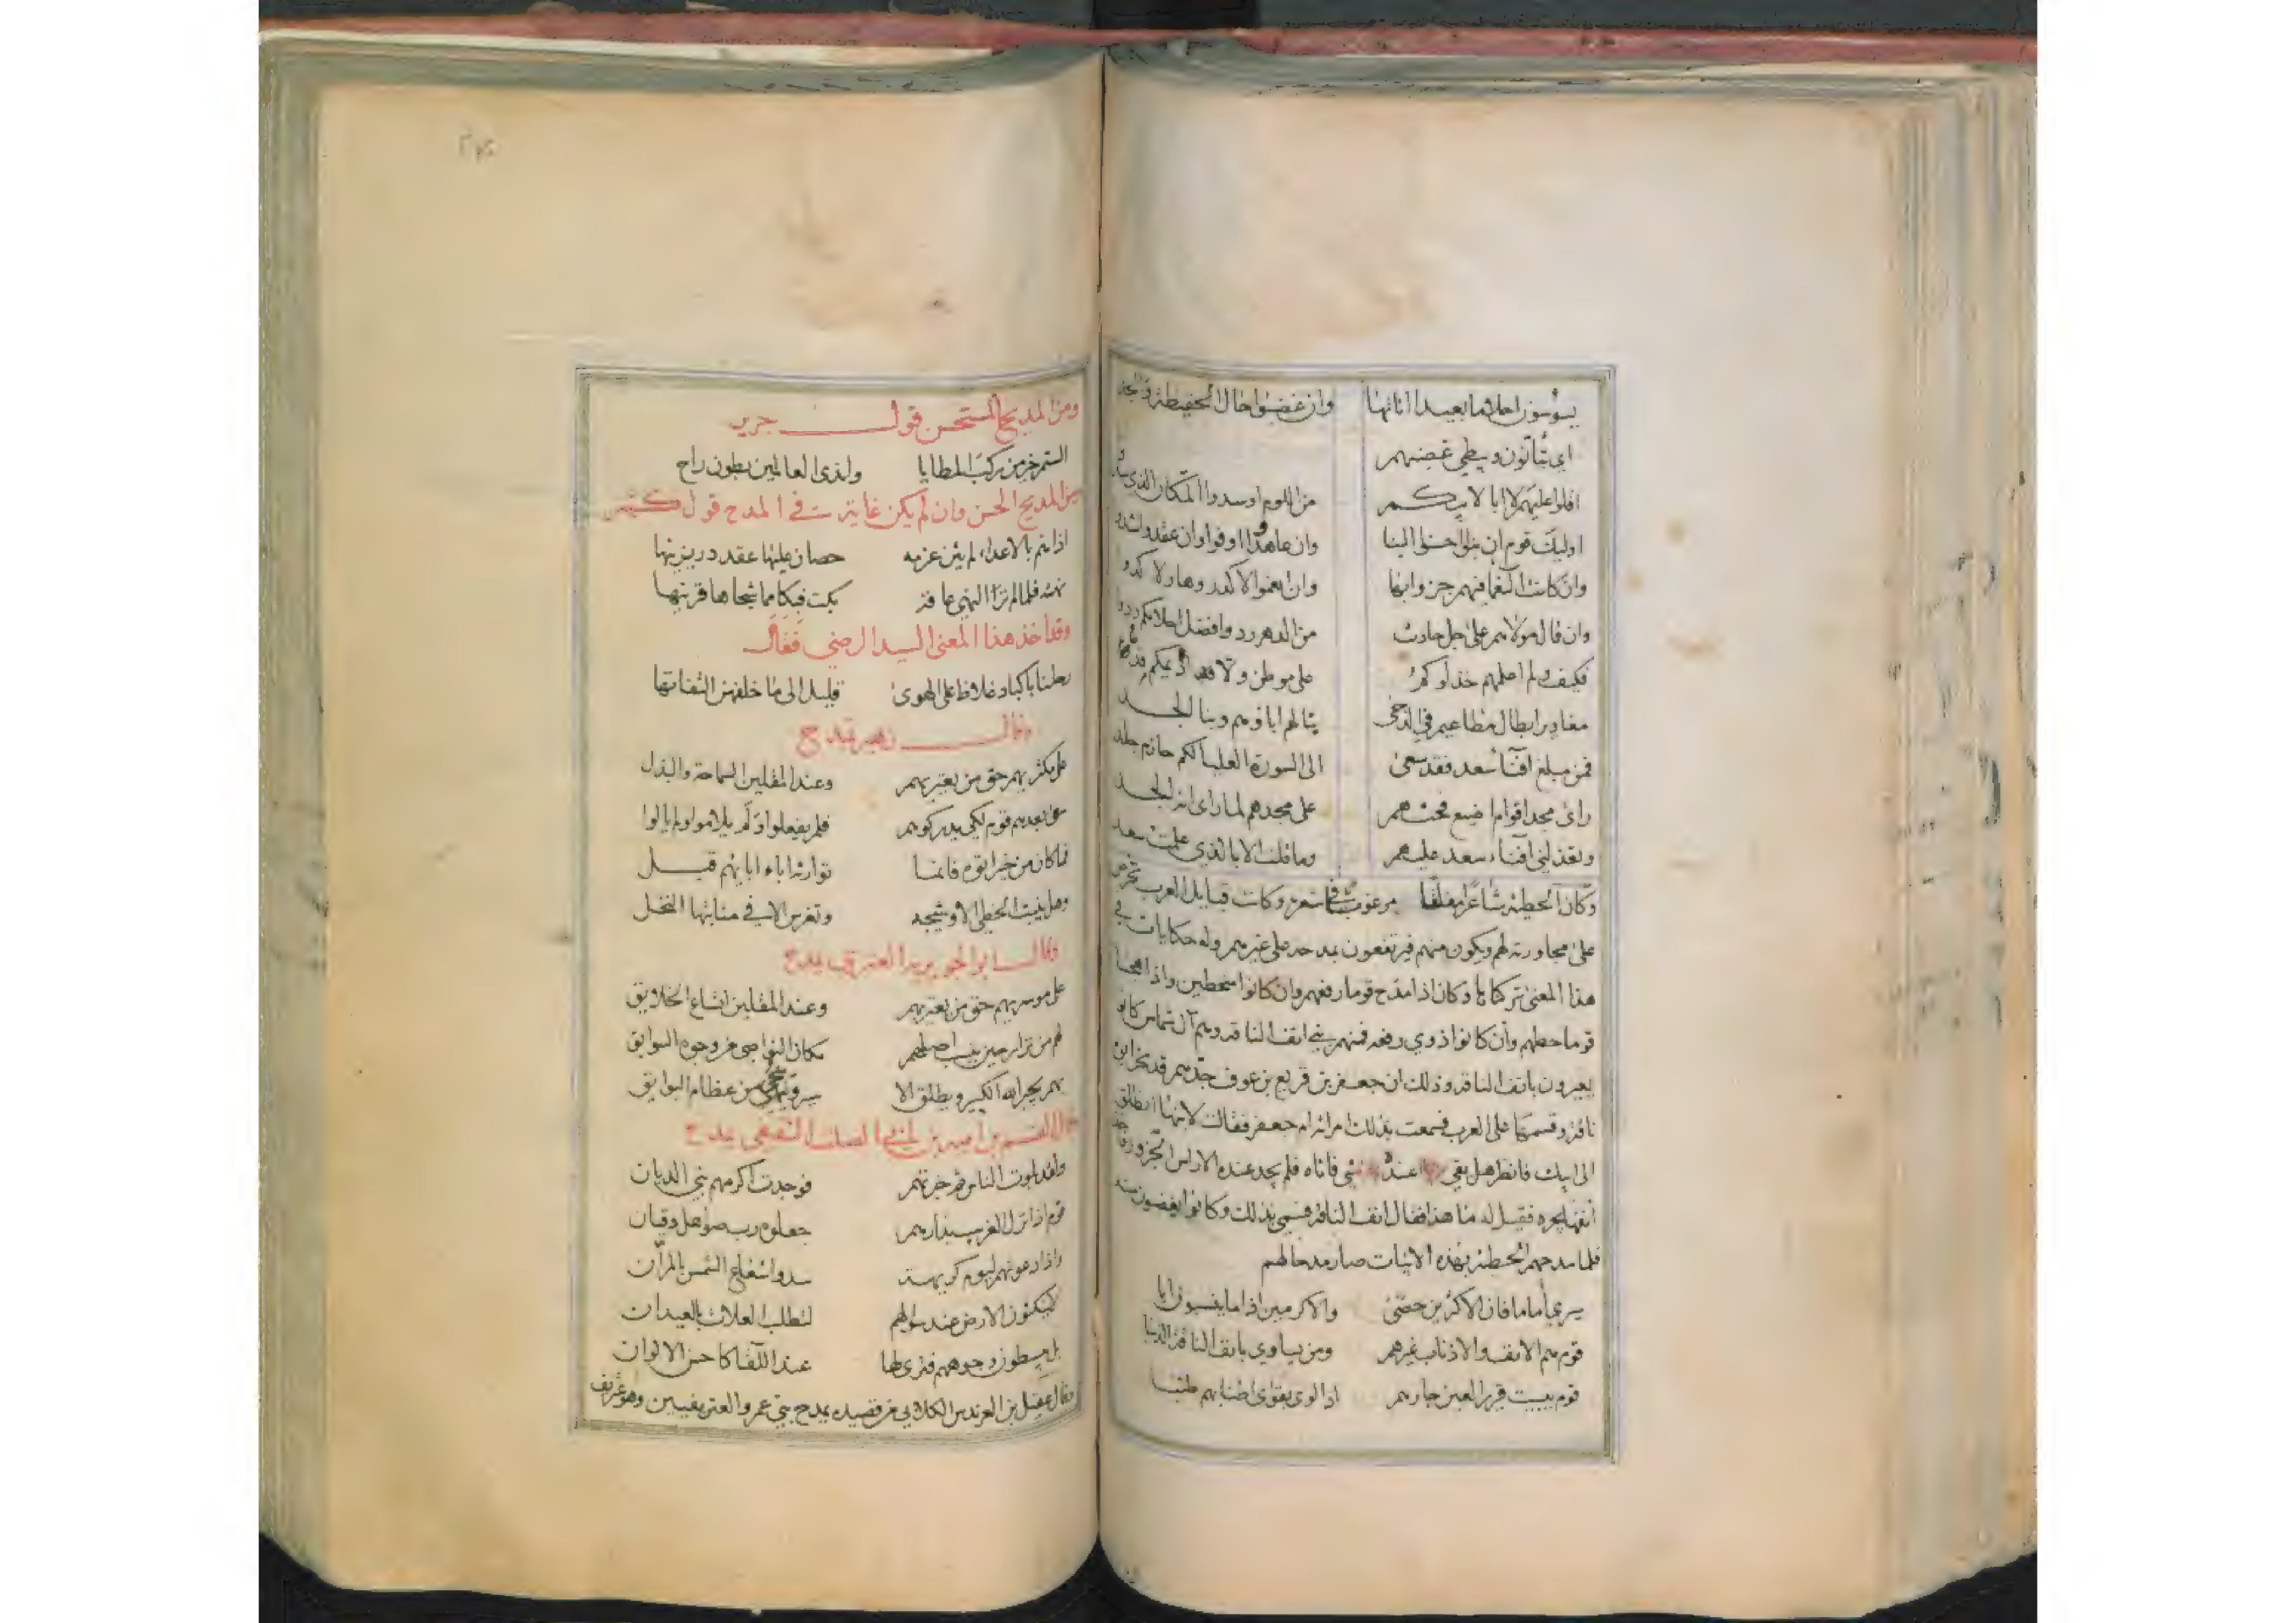 يسوسون احلاما بعيدا اناتها وان غضبوا جا الحفيظة والجد
اي يتأنون ويبطي غضبهم
اقلوا عليهم لا ابا لابيكم من اللوم او سدوا المكان الذي سدوا
اوليك قوم ان بنوا احسنوا البنا وان عاهدوا اوفوا وان عقدوا شدوا
وان كانت النعما فيهم جزوا بها وان انعموا لا كدروها ولا كدوا
وان قال مولاهم على جل حادث من الدهر ردوا فضل احلامكم ردوا
فكيف ولم اعلمهم خذلوكم على موطن ولا اديمكم قدوا
مغاوير ابطال مطاعيم في الدجى بنا لهم اباوهم وبنا الجد
فمن مبلغ افنآ سعد فقد سعى الى السورة العليا لكم حازم جلد
راى مجد اقوام اضيع فحثهم على مجدهم لما راى انه الجد
وتعذلني افناء سعد عليهم وما قلت الا بالذي علمت سعد
وكان الحطيئة شاعرا مفلقا مرغوبا في شعره وكانت قبايل العرب تحرص
على مجاورته لهم ويكون منهم فيرتفعون بمدحه على غيرهم وله حكايات في
هذا المعنى تركناها وكان اذا مدح قوما رفعهم وان كانوا منحطين واذا هجا
قوما حطهم وان كانوا ذوي رفعه فمنهم بني انف الناقه وهم آل شماس كانوا
يعيرون بانف الناقه وذلك ان جعفر بن قريع بن عوف جدهم قد نحر ابوه
ناقة وقسمها على العرب فسمعت بذلك امراته ام جعفر فقالت لابنها انطلق
الى ابيك فانظر هل بقي عنده شي فاتاه فلم يجد عنده الا راس الجزور فاخذ
انفها يجره فقيل له ما هذا فقال انف الناقه فسمي بذلك وكانوا يغضبون منه
فلما مدحهم الحطيئة بهذه الابيات صار مدحا لهم
سيري أماما فان الاكثرين حصى والاكرمين اذا ما ينسبون ابا
قوم هم الانف والاذناب غيرهم ومن يساوي بانف الناقة الذنبا
قوم يبيت قرير العين جارهم اذا لوى بقوى اطنابهم طنبا
ومن المديح المستحسن قول جرير
الستم خير من ركب المطايا واندى العالمين بطون راح
ومن المديح الحسن وان لم يكن غاية في المدح قول كثير
اذا هم بالاعداء لم يثن عزمه حصان عليها عقد در يزينها
نهته فلما لم تر النهي عاقه بكت فبكا مما شجاها قرينها
وقد اخذ هذا المعنى السيد الرضي فقال
رحلنا باكباد غلاظ على الهوى قليل الى ما خلفهن التفاتها
وقال زهير يمدح
على مكثريهم حق من يعتريهم وعند المقلين السماحة والبذل
سعى بعدهم قوم لكي يدركوهم فلم يفعلوا ولم يلاموا ولم يالوا
فما كان من خير اتوه فانما توارثه اباء ابايهم قبل
وهل ينبت الخطي الا وشيجه وتغرس الا في منابتها النخل
وقال ابو الجويرية العنزي يمدح
على موسريهم حق من يعتريهم وعند المقلين اتساع الخلايق
لهم من نزار حين ينسب اصلهم مكان النواصي من وجوه السوابق
بهم يجبر الله الكسير ويطلق الا سير وينجي من عظام البوايق
وقال القسم بن اميه بن ابي الصلت الثقفي يمدح
ولقد بلوت الناس ثم خبرتهم فوجدت اكرمهم بني الديان
قوم اذا نزل الغريب بدارهم جعلوه رب صواهل وقيان
واذا دعوتهم ليوم كريهة سدوا شعاع الشمس بالمرآن
لا ينكتون الارض عند سوالهم لتطلب العلات بالعيدان
بل يبسطون وجوههم فترى لها عند اللقا كاحسن الالوان
وقال عقيل بن العرندس الكلابي من قصيده يمدح بني عمرو الغنويين وهو